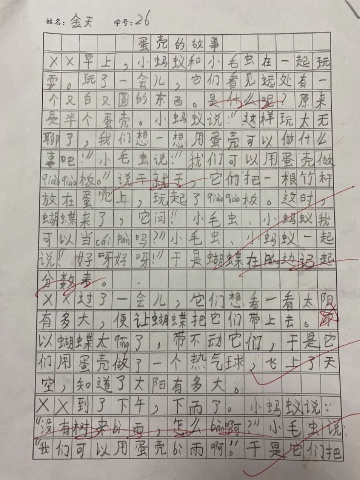 姓名：金天 学号：26
蛋壳的故事
××早上，小蚂蚁和小毛虫在一起玩
耍。玩了一会儿，它们看见远处有一
个又白又圆的东西。是什么呢？原来
是半个蛋壳。小蚂蚁说："这样玩太无
聊了，我们想一想用蛋壳可以做什么
事吧！"小毛虫说："我们可以用蛋壳做
qiāoqiāo板。"说干就干，它们把一根竹杆
放在蛋壳上，玩起了qiāoqiāo板。这时，
蝴蝶来了，它问："小毛虫、小蚂蚁我
可以当cái pàn吗？"小毛虫、小蚂蚁一起
说："好呀好呀！"于是蝴蝶在边记起
分数来。
××过了一会儿，它们想看一看太阳
有多大，便让蝴蝶把它们带上去。可
以蝴蝶太了，带不动它们，于是它
们用蛋壳做了一个热气球，飞上了天
空，知道了太阳有多大。
××到了下午，下雨了。小蚂蚁说：
"没有树来bì雨，怎么bàn呀？"小毛虫说：
"我们可以用蛋壳bì雨啊。"于是它们把